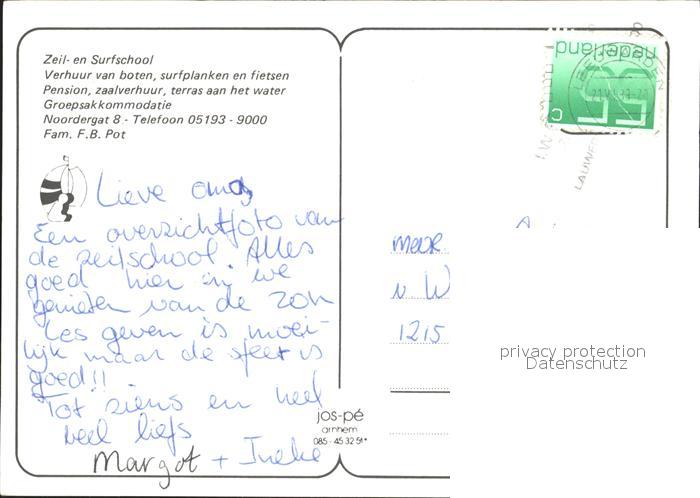 Zeil- en Surfschool
Verhuur van boten, surfplanken en fietsen
Pension, zaalverhuur, terras aan het water
Groepsakkommodatie
Noordergat 8 - Telefoon 05193 - 9000
Fam. F.B. Pot
Lieve oma,
Een overzichtfoto van
de zeilschool. Alles
goed hier en we
genieten van de zon
Les geven is moei-
lijk maar de sfeer is
goed!!
Tot ziens en heel
veel liefs
Margot + Ineke
jos-pé
arnhem
085-453251*
nederland
LAUWER
mevr.
v W
1215
privacy protection
Datenschutz